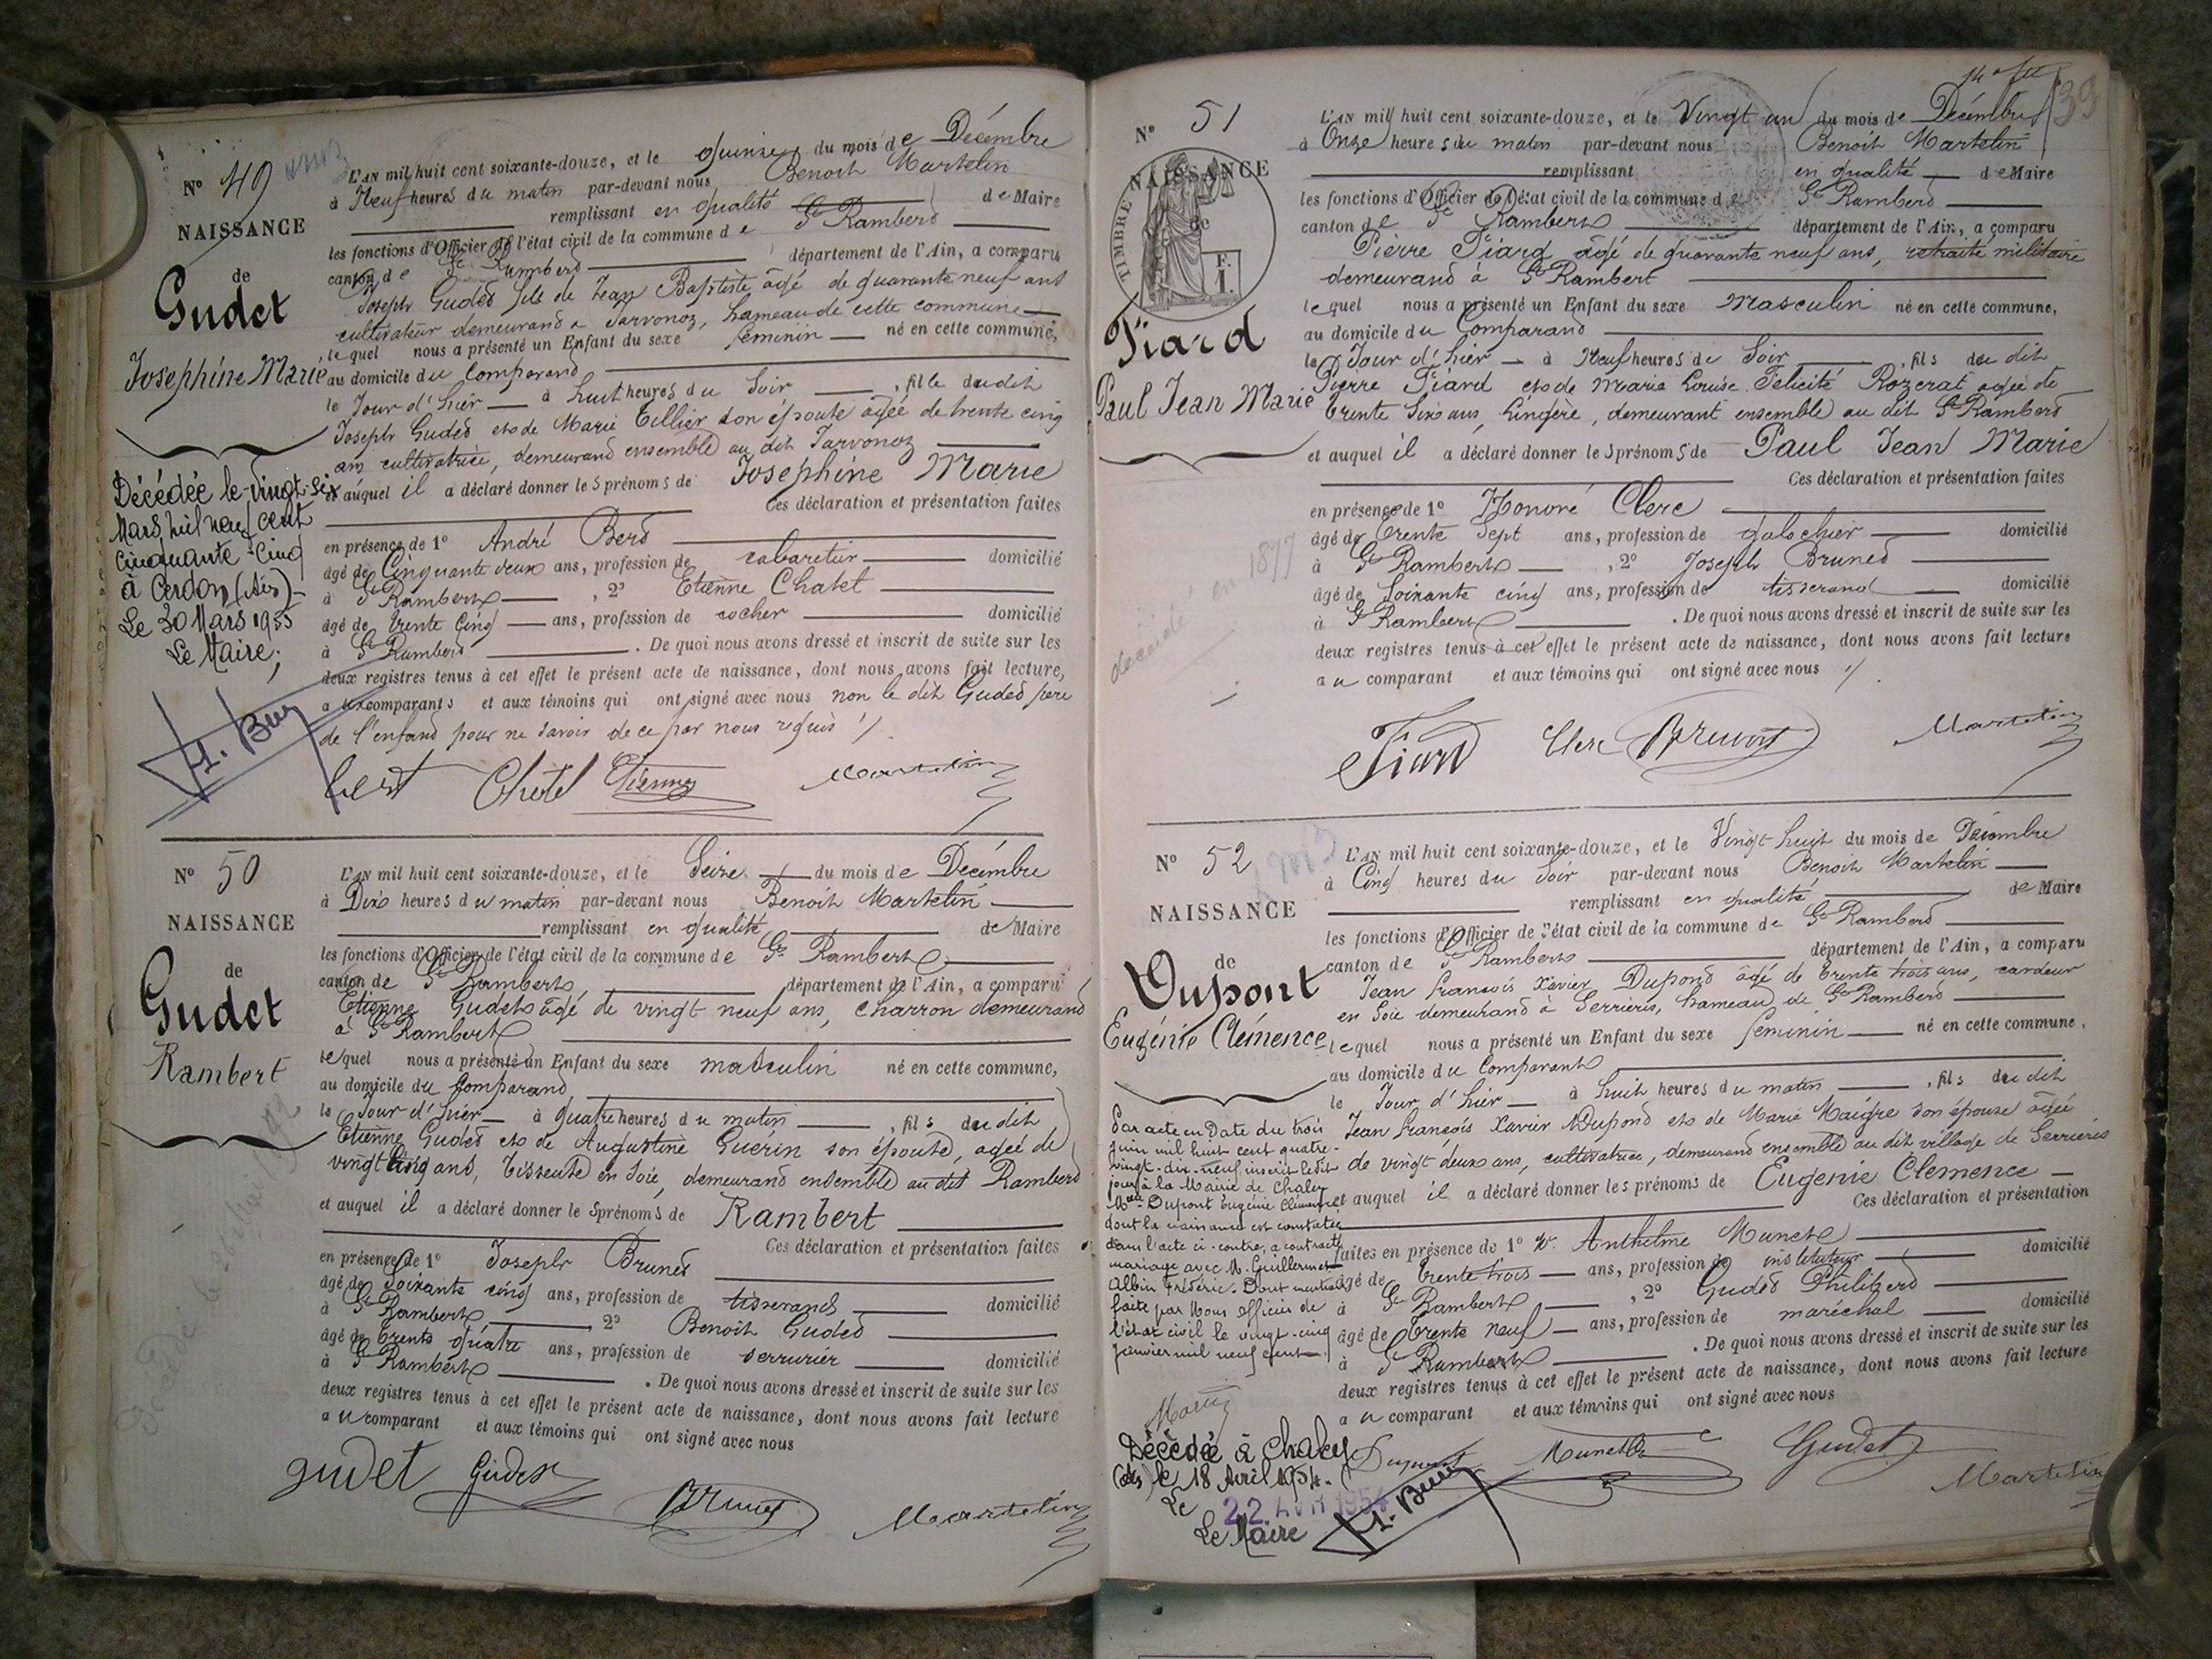 Nº 49
NAISSANCE
de
Gudet
Josephine Marie
Décédée le vingt-six
Mars mil neuf cent
cinquante-cinq
à Cerdon (Ain)
Le 30 Mars 1955
Le Maire,
L'AN mil huit cent soixante-douze, et le quinze du mois de Décembre
à Neuf heures du matin par-devant nous Benoit Martelin
remplissant en qualité de Maire
les fonctions d'Officier de l'état civil de la commune de St Rambert
canton de St Rambert département de l'Ain, a comparu
Joseph Gudet fils de Jean Baptiste âgé de quarante neuf ans
cultivateur demeurant à Javornoz, hameau de cette commune
lequel nous a présenté un Enfant du sexe féminin né en cette commune,
au domicile du Comparant
le Jour d'hier à huit heures du Soir, fille du dit
Joseph Gudet et de Marie Tillier son épouse âgée de trente cinq
ans cultivatrice, demeurant ensemble au dit Javornoz
et auquel il a déclaré donner les prénoms de Josephine Marie
Ces déclaration et présentation faites
en présence de 1º André Berd
âgé de Cinquante deux ans, profession de cabaretier domicilié
à St Rambert, 2º Etienne Chatel
âgé de trente cinq ans, profession de cocher domicilié
à St Rambert. De quoi nous avons dressé et inscrit de suite sur les
deux registres tenus à cet effet le présent acte de naissance, dont nous avons fait lecture,
aux comparants et aux témoins qui ont signé avec nous non le dit Gudet père
de l'enfant pour ne savoir de ce par nous requis
Chatel Etienne Martelin
Nº 50
NAISSANCE
de
Gudet
Rambert
L'AN mil huit cent soixante-douze, et le Seize du mois de Décembre
à Dix heures du matin par-devant nous Benoit Martelin
remplissant en qualité de Maire
les fonctions d'Officier de l'état civil de la commune de St Rambert
canton de St Rambert département de l'Ain, a comparu
Etienne Gudet âgé de vingt neuf ans, charron demeurant
à St Rambert
lequel nous a présenté un Enfant du sexe masculin né en cette commune,
au domicile du Comparant
le Jour d'hier à quatre heures du matin, fils du dit
Etienne Gudet et de Augustine Guerin son épouse, âgée de
vingt cinq ans, tisseuse en Soie, demeurant ensemble au dit Rambert
et auquel il a déclaré donner les prénoms de Rambert
Ces déclaration et présentation faites
en présence de 1º Joseph Brunet
âgé de Soixante cinq ans, profession de tisserand domicilié
à St Rambert 2º Benoit Gudet
âgé de trente quatre ans, profession de serrurier domicilié
à St Rambert. De quoi nous avons dressé et inscrit de suite sur les
deux registres tenus à cet effet le présent acte de naissance, dont nous avons fait lecture
au comparant et aux témoins qui ont signé avec nous
gudet Gudet Brunet Martelin
39
Nº 51
NAISSANCE
de
TIMBRE
F.
1.
Tiard
Paul Jean Marie
décédé en 1877
L'AN mil huit cent soixante-douze, et le Vingt un du mois de Décembre
à Onze heures du matin par-devant nous Benoit Martelin
remplissant en qualité de Maire
les fonctions d'Officier de l'état civil de la commune de St Rambert
canton de St Rambert département de l'Ain, a comparu
Pierre Tiard âgé de quarante neuf ans, retraité militaire
demeurant à St Rambert
lequel nous a présenté un Enfant du sexe masculin né en cette commune,
au domicile du Comparant
le Jour d'hier à Neuf heures de Soir, fils du dit
Pierre Tiard et de Marie Louise Félicité Rozerat âgée de
trente six ans, lingère, demeurant ensemble au dit St Rambert
et auquel il a déclaré donner les prénoms de Paul Jean Marie
Ces déclaration et présentation faites
en présence de 1º Honoré Clerc
âgé de trente Sept ans, profession de galochier domicilié
à St Rambert, 2º Joseph Brunet
âgé de Soixante cinq ans, profession de tisserand domicilié
à St Rambert. De quoi nous avons dressé et inscrit de suite sur les
deux registres tenus à cet effet le présent acte de naissance, dont nous avons fait lecture
au comparant et aux témoins qui ont signé avec nous
Tiard Clerc Brunet Martelin
Nº 52
NAISSANCE
de
Dupont
Eugénie Clémence
Par acte en date du trois
juin mil huit cent quatre-
vingt-dix-neuf inscrit le dit
jour à la Mairie de Chaley
Dupont Eugénie Clémence
dont la naissance est constatée
dans l'acte ci-contre, a contracté
mariage avec M. Guillermet
Albin Frédéric. Dont mention
faite par Nous officier de
l'état civil le vingt-cinq
janvier mil neuf cent.
Décédée à Chaley
(Ain) le 18 Avril 1954.
Le 22 AVR 1954
Le Maire
L'AN mil huit cent soixante-douze, et le Vingt huit du mois de Décembre
à Cinq heures du Soir par-devant nous Benoit Martelin
remplissant en qualité de Maire
les fonctions d'Officier de l'état civil de la commune de St Rambert
canton de St Rambert département de l'Ain, a comparu
Jean françois Xavier Dupont âgé de trente trois ans, cardeur
en Soie demeurant à Serrières, hameau de St Rambert
lequel nous a présenté un Enfant du sexe féminin né en cette commune,
au domicile du Comparant
le Jour d'hier à huit heures du matin, fils du dit
Jean françois Xavier Dupont et de Marie Maigre son épouse âgée
de vingt deux ans, cultivatrice, demeurant ensemble au dit village de Serrières
et auquel il a déclaré donner les prénoms de Eugénie Clemence
Ces déclaration et présentation
faites en présence de 1º Anthelme Munet
âgé de trente trois ans, profession de instituteur domicilié
à St Rambert, 2º Gudet Philibert
âgé de trente neuf ans, profession de maréchal domicilié
à St Rambert. De quoi nous avons dressé et inscrit de suite sur les
deux registres tenus à cet effet le présent acte de naissance, dont nous avons fait lecture
au comparant et aux témoins qui ont signé avec nous
Dupont Gudet Martelin